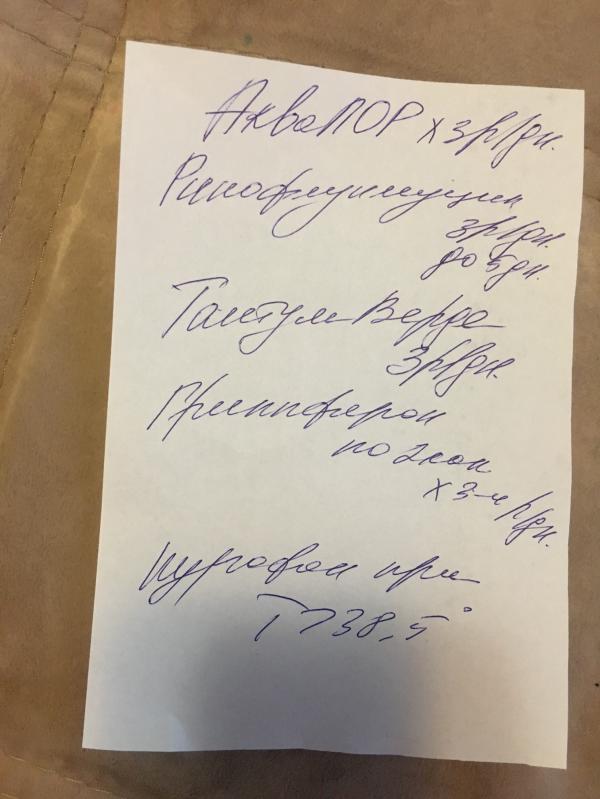 АкваЛОР х 3р/дн.
Ринофлуимуцил
3р/дн.
до 5 дн.
Тантум Верде
3р/дн.
Гриппферон
по 2 кап
х 3-4 р/дн.
Нурофен при
Т > 38,5°